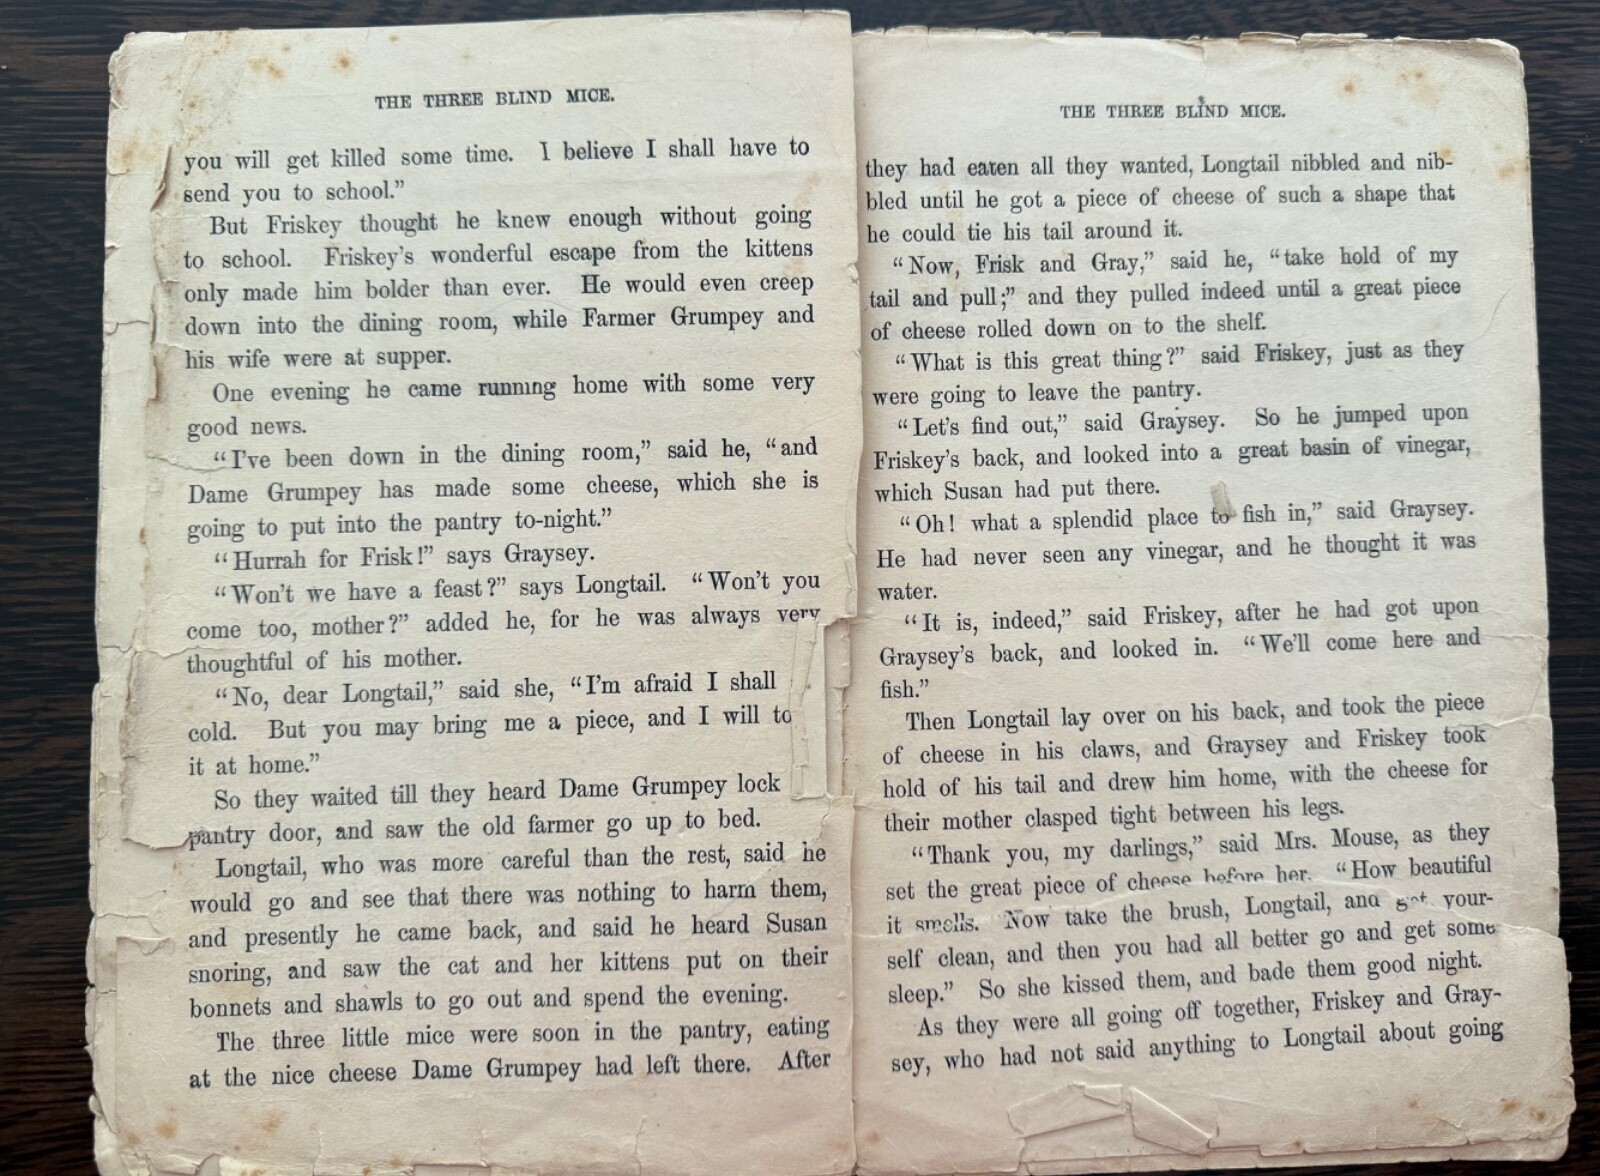 THE THREE BLIND MICE.
you will get killed some time. I believe I shall have to
send you to school.”
But Friskey thought he knew enough without going
to school. Friskey's wonderful escape from the kittens
only made him bolder than ever. He would even creep
down into the dining room, while Farmer Grumpey and
his wife were at supper.
One evening he came running home with some very
good news.
“I've been down in the dining room,” said he, “and
Dame Grumpey has made some cheese, which she is
going to put into the pantry to-night.”
“Hurrah for Frisk!” says Graysey.
“Won't we have a feast?” says Longtail. “Won't you
come too, mother?” added he, for he was always very
thoughtful of his mother.
“No, dear Longtail,” said she, “I'm afraid I shall
cold. But you may bring me a piece, and I will
it at home.”
So they waited till they heard Dame Grumpey lock
pantry door, and saw the old farmer go up to bed.
Longtail, who was more careful than the rest, said he
would go and see that there was nothing to harm them,
and presently he came back, and said he heard Susan
snoring, and saw the cat and her kittens put on their
bonnets and shawls to go out and spend the evening.
The three little mice were soon in the pantry, eating
at the nice cheese Dame Grumpey had left there. After
THE THREE BLIND MICE.
they had eaten all they wanted, Longtail nibbled and nib-
bled until he got a piece of cheese of such a shape that
he could tie his tail around it.
“Now, Frisk and Gray,” said he, “take hold of my
tail and pull;” and they pulled indeed until a great piece
of cheese rolled down on to the shelf.
“What is this great thing?” said Friskey, just as they
were going to leave the pantry.
“Let's find out,” said Graysey. So he jumped upon
Friskey's back, and looked into a great basin of vinegar,
which Susan had put there.
“Oh! what a splendid place to fish in,” said Graysey.
He had never seen any vinegar, and he thought it was
water.
“It is, indeed,” said Friskey, after he had got upon
Graysey's back, and looked in. “We'll come here and
fish.”
Then Longtail lay over on his back, and took the piece
of cheese in his claws, and Graysey and Friskey took
hold of his tail and drew him home, with the cheese for
their mother clasped tight between his legs.
“Thank you, my darlings,” said Mrs. Mouse, as they
set the great piece of cheese before her. “How beautiful
it smells. Now take the brush, Longtail, and get your-
self clean, and then you had all better go and get some
sleep.” So she kissed them, and bade them good night.
As they were all going off together, Friskey and Gray-
sey, who had not said anything to Longtail about going